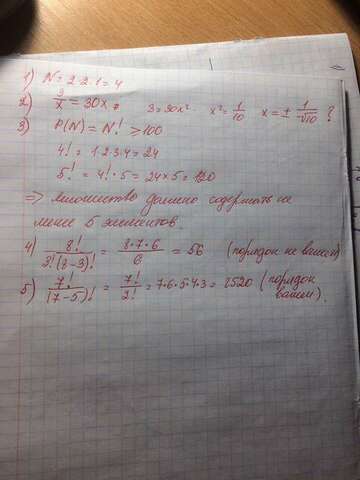 1) N = 2·2·1 = 4
2) 3/x = 30x, 3 = 30x² x² = 1/10 x = ± 1/√10 ?
3) P(N) = N! ≥ 100
4! = 1·2·3·4 = 24
5! = 4!·5 = 24×5 = 120
⇒ множество должно содержать не
менее 5 элементов.
4) 8!/3!(8-3)! = 8·7·6/6 = 56 (порядок не важен)
5) 7!/(7-5)! = 7!/2! = 7·6·5·4·3 = 2520 (порядок
важен).